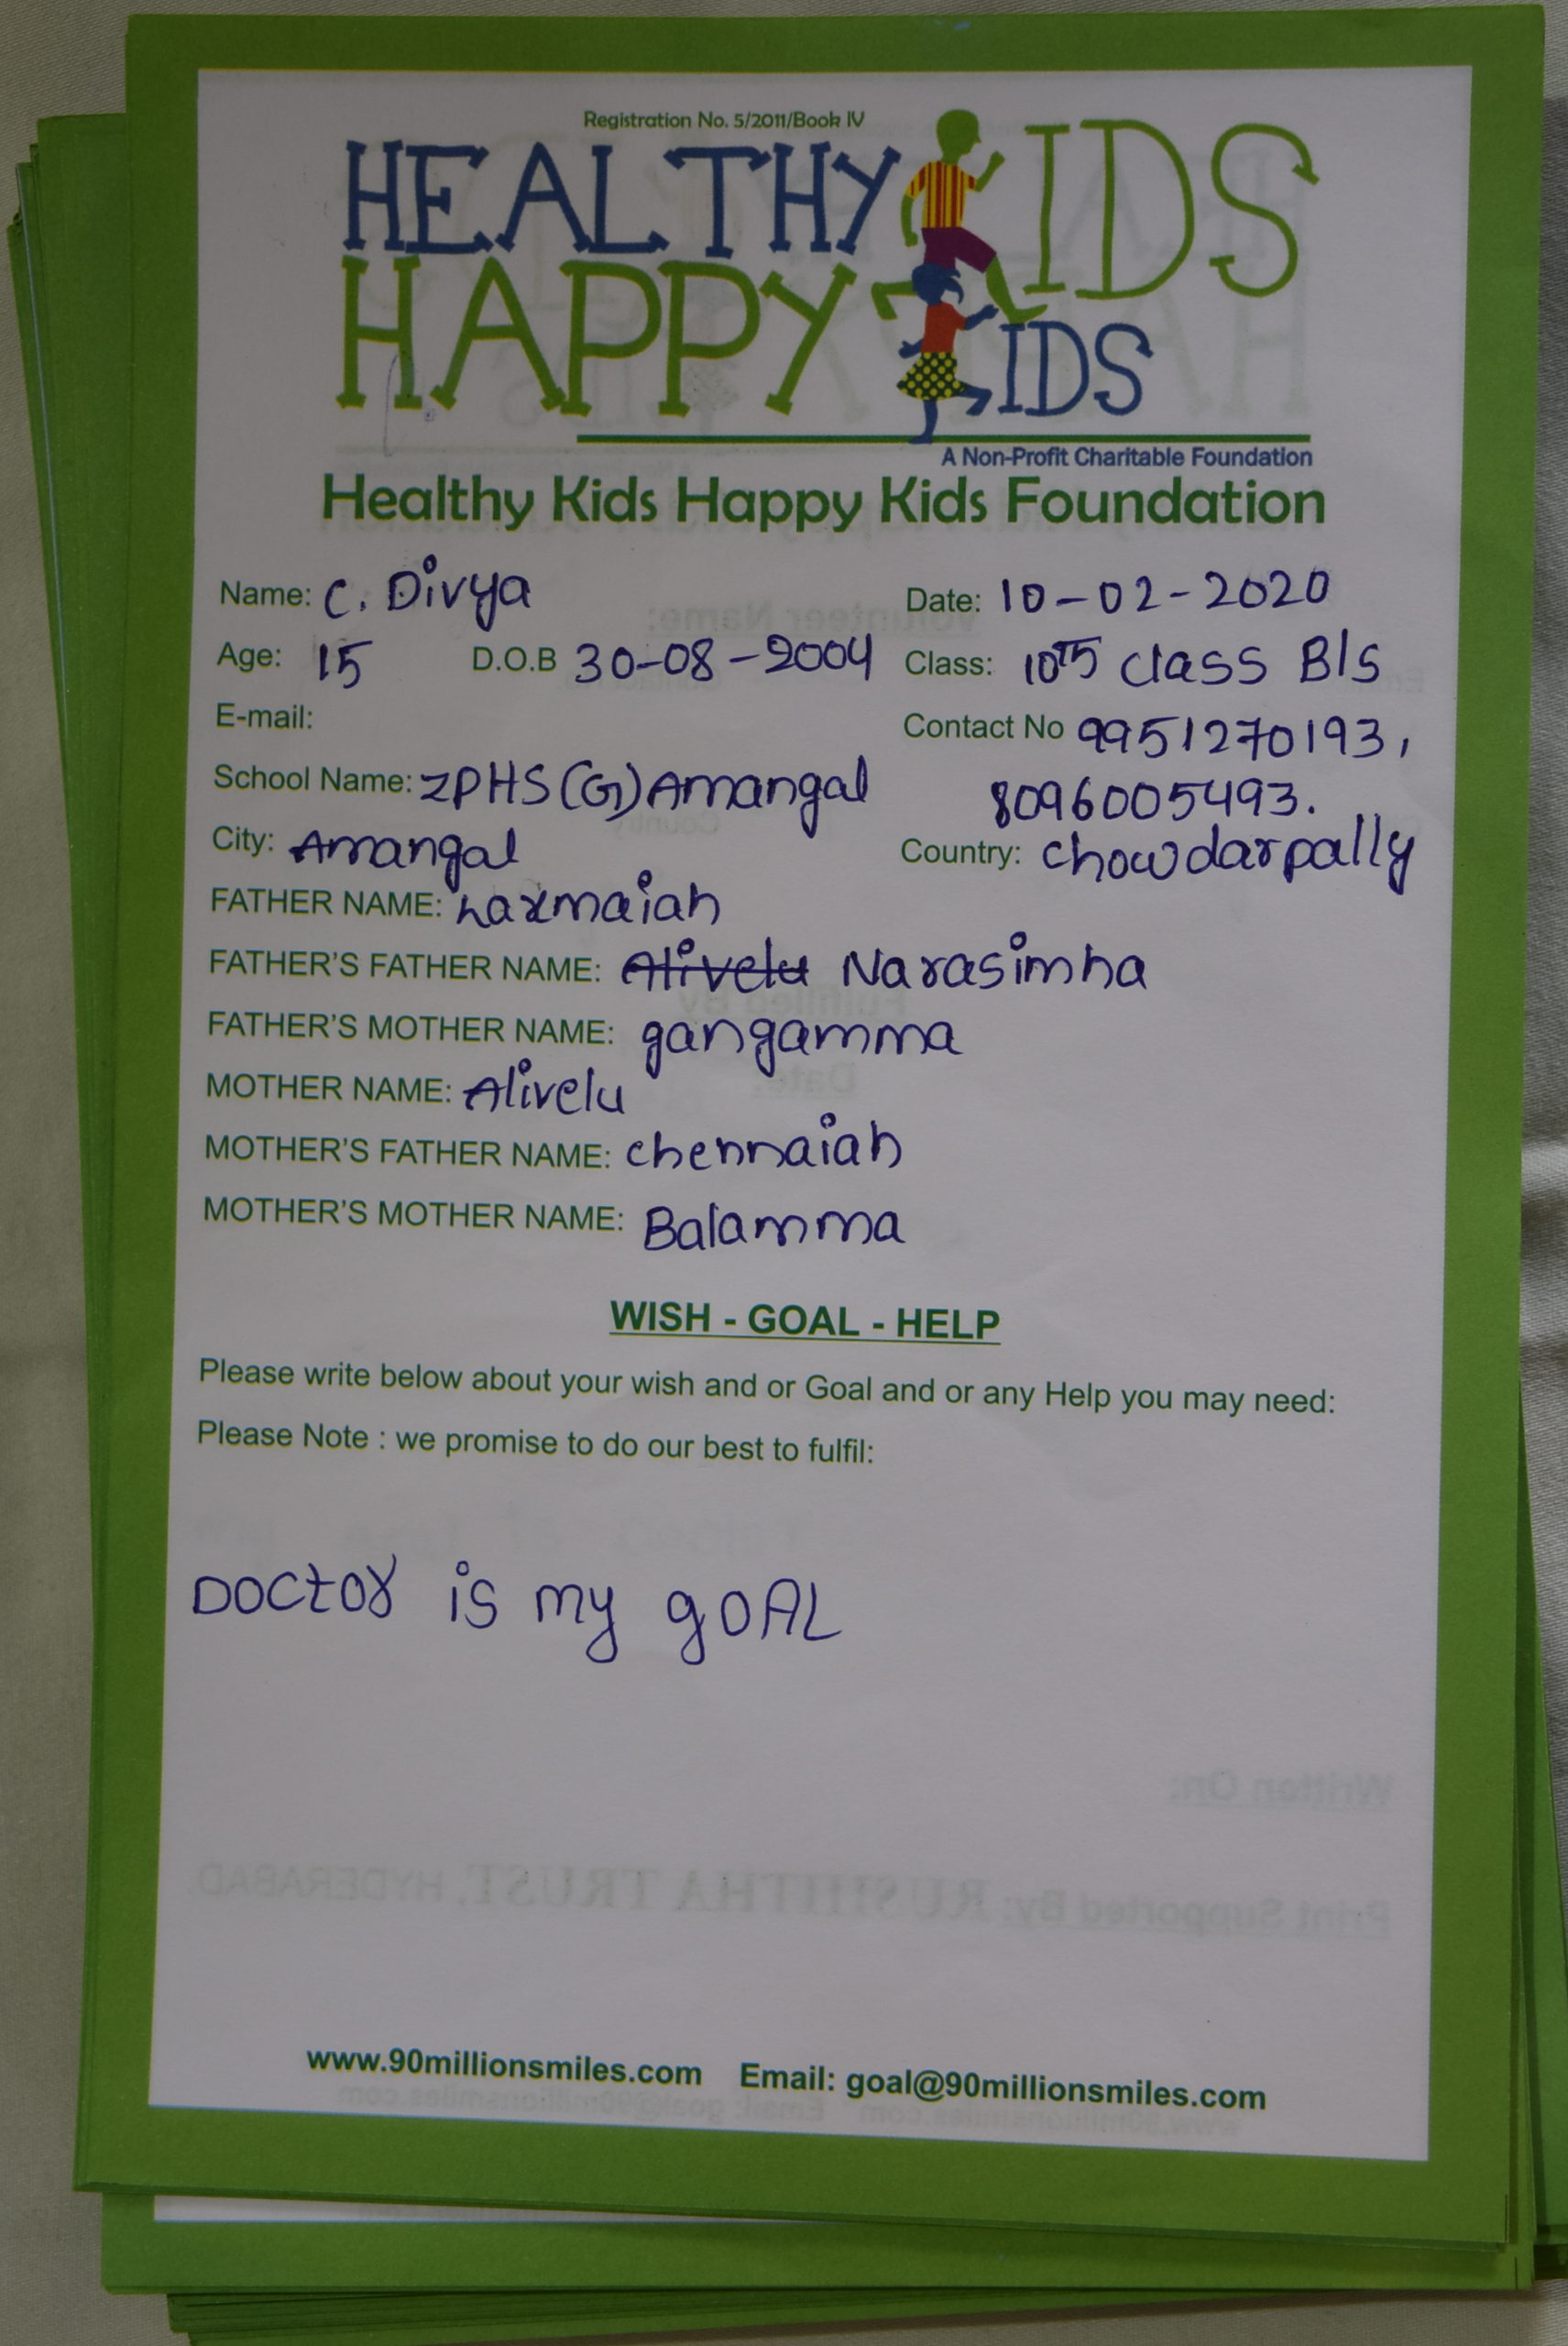 Registration No. 5/2011/Book IV
HEALTHY KIDS
HAPPY KIDS
A Non-Profit Charitable Foundation
Healthy Kids Happy Kids Foundation
Name: C. Divya Date: 10-02-2020
Age: 15 D.O.B 30-08-2004 Class: 10th class B/s
E-mail: Contact No 9951270193,
School Name: ZPHS(G) Amangal 8096005493.
City: Amangal Country: chowdarpally
FATHER NAME: Laxmaiah
FATHER'S FATHER NAME: Alivelu Narasimha
FATHER'S MOTHER NAME: gangamma
MOTHER NAME: Alivelu
MOTHER'S FATHER NAME: chennaiah
MOTHER'S MOTHER NAME: Balamma
WISH - GOAL - HELP
Please write below about your wish and or Goal and or any Help you may need:
Please Note : we promise to do our best to fulfil:
DOCtOr is my gOAL
Written On:
Print Supported By: RUSHITHA TRUST, HYDERABAD
www.90millionsmiles.com Email: goal@90millionsmiles.com